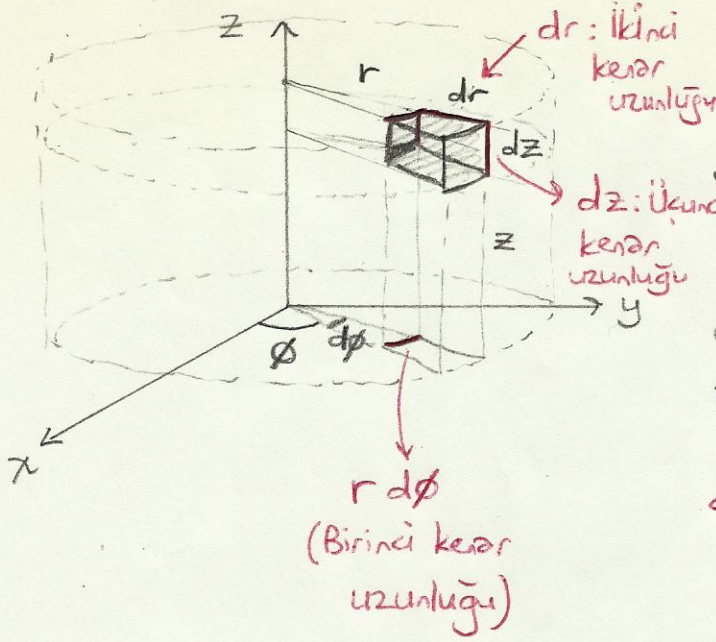 z
dr: İkinci
kenar
uzunluğu
r
dr
dz
dz: Üçüncü
kenar
uzunluğu
z
y
φ
dφ
x
r dφ
(Birinci kenar
uzunluğu)